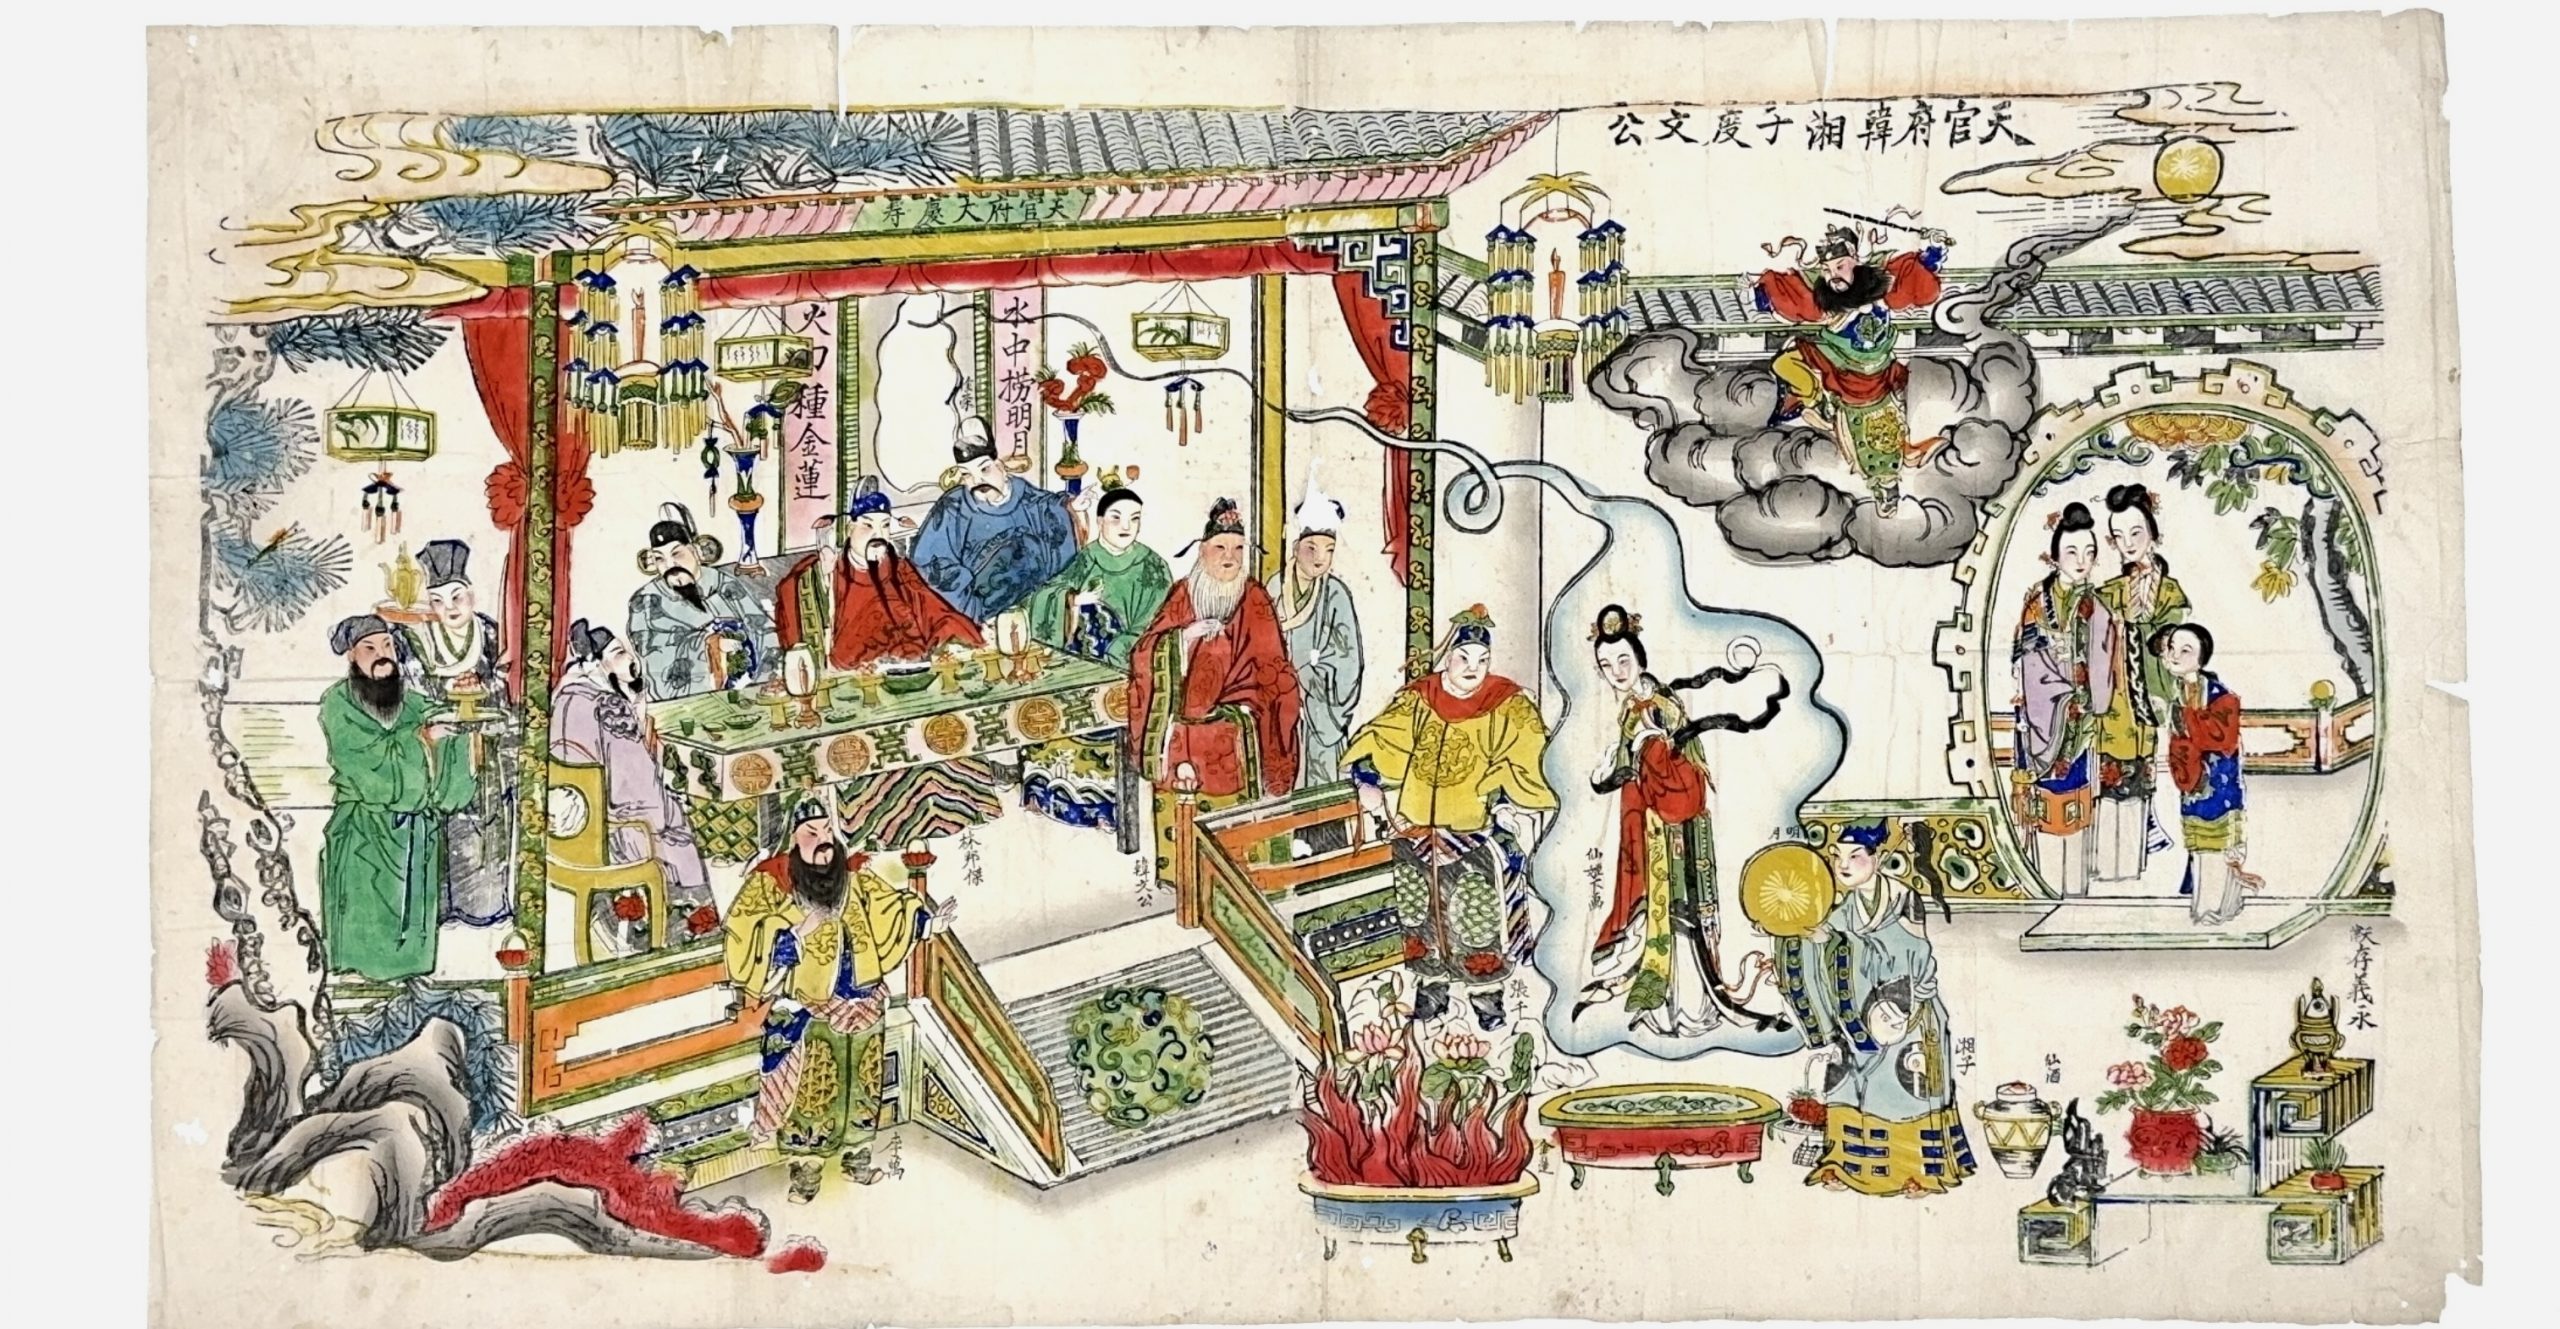 天官府韓湘子度文公
天官府大慶壽
水中捞明月
火內種金蓮
林邦傑
韓文公
李萬
張千
仙姬下画
明月
湘子
仙酒
金蓮
義永